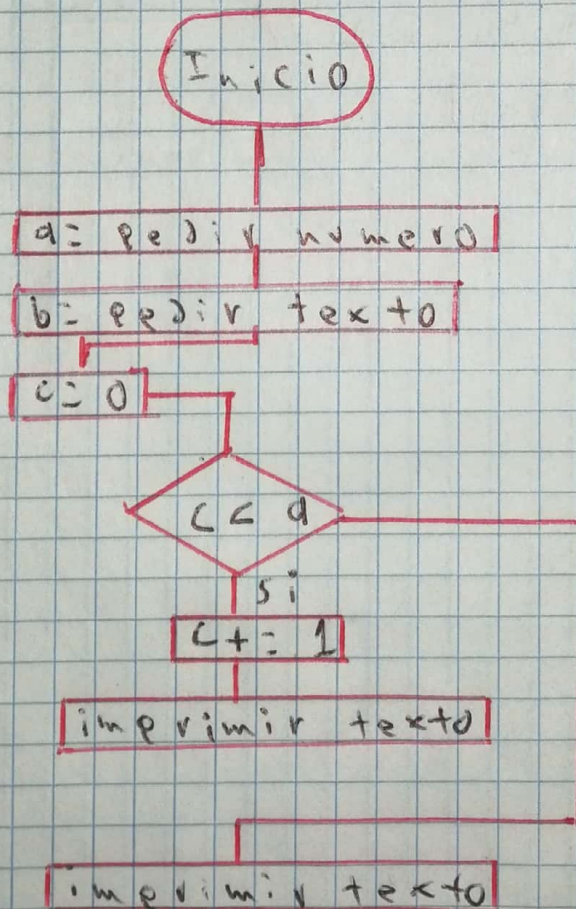 Inicio
a= pedir numero
b= pedir texto
c= 0
c < a
si
c += 1
imprimir texto
imprimir texto